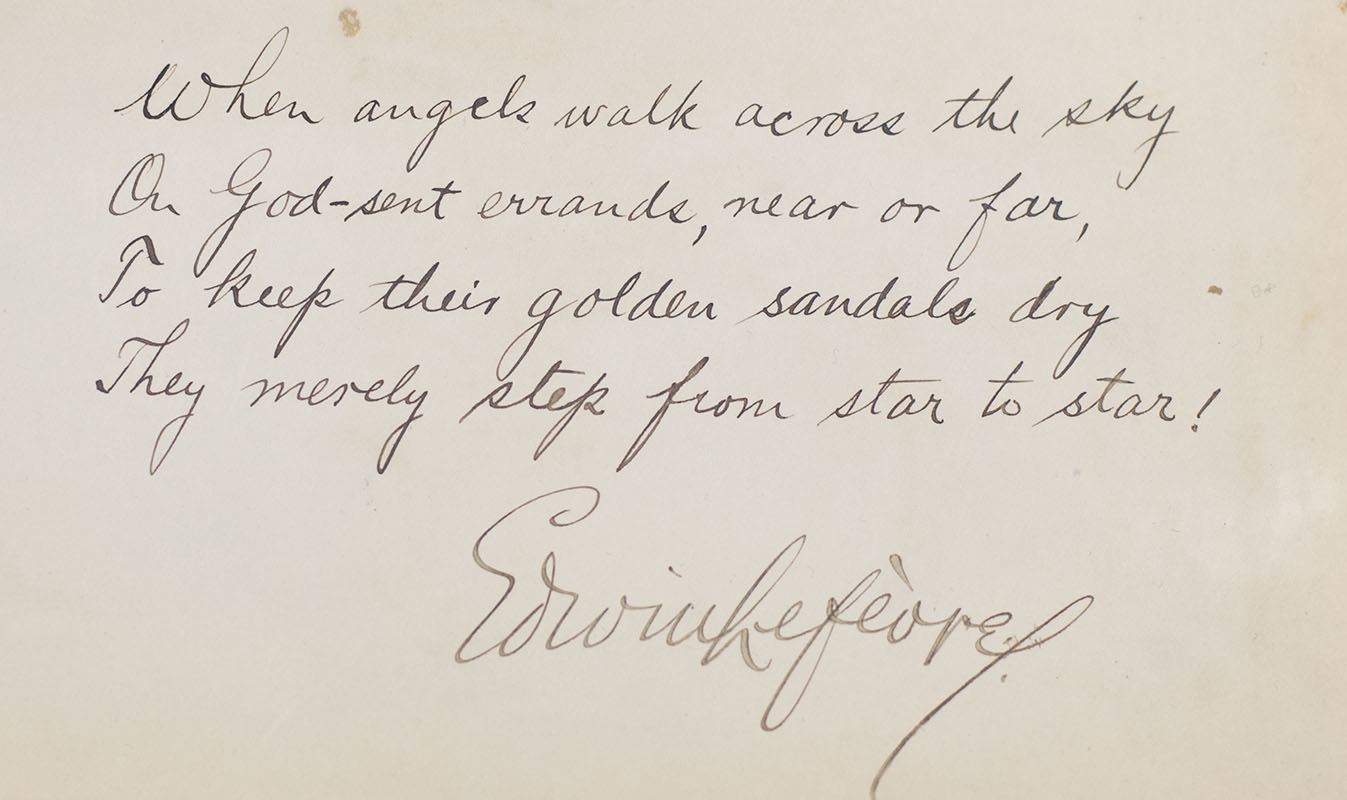 When angels walk across the sky
On God-sent errands, near or far,
To keep their golden sandals dry
They merely step from star to star!
Edwin Lefèvre